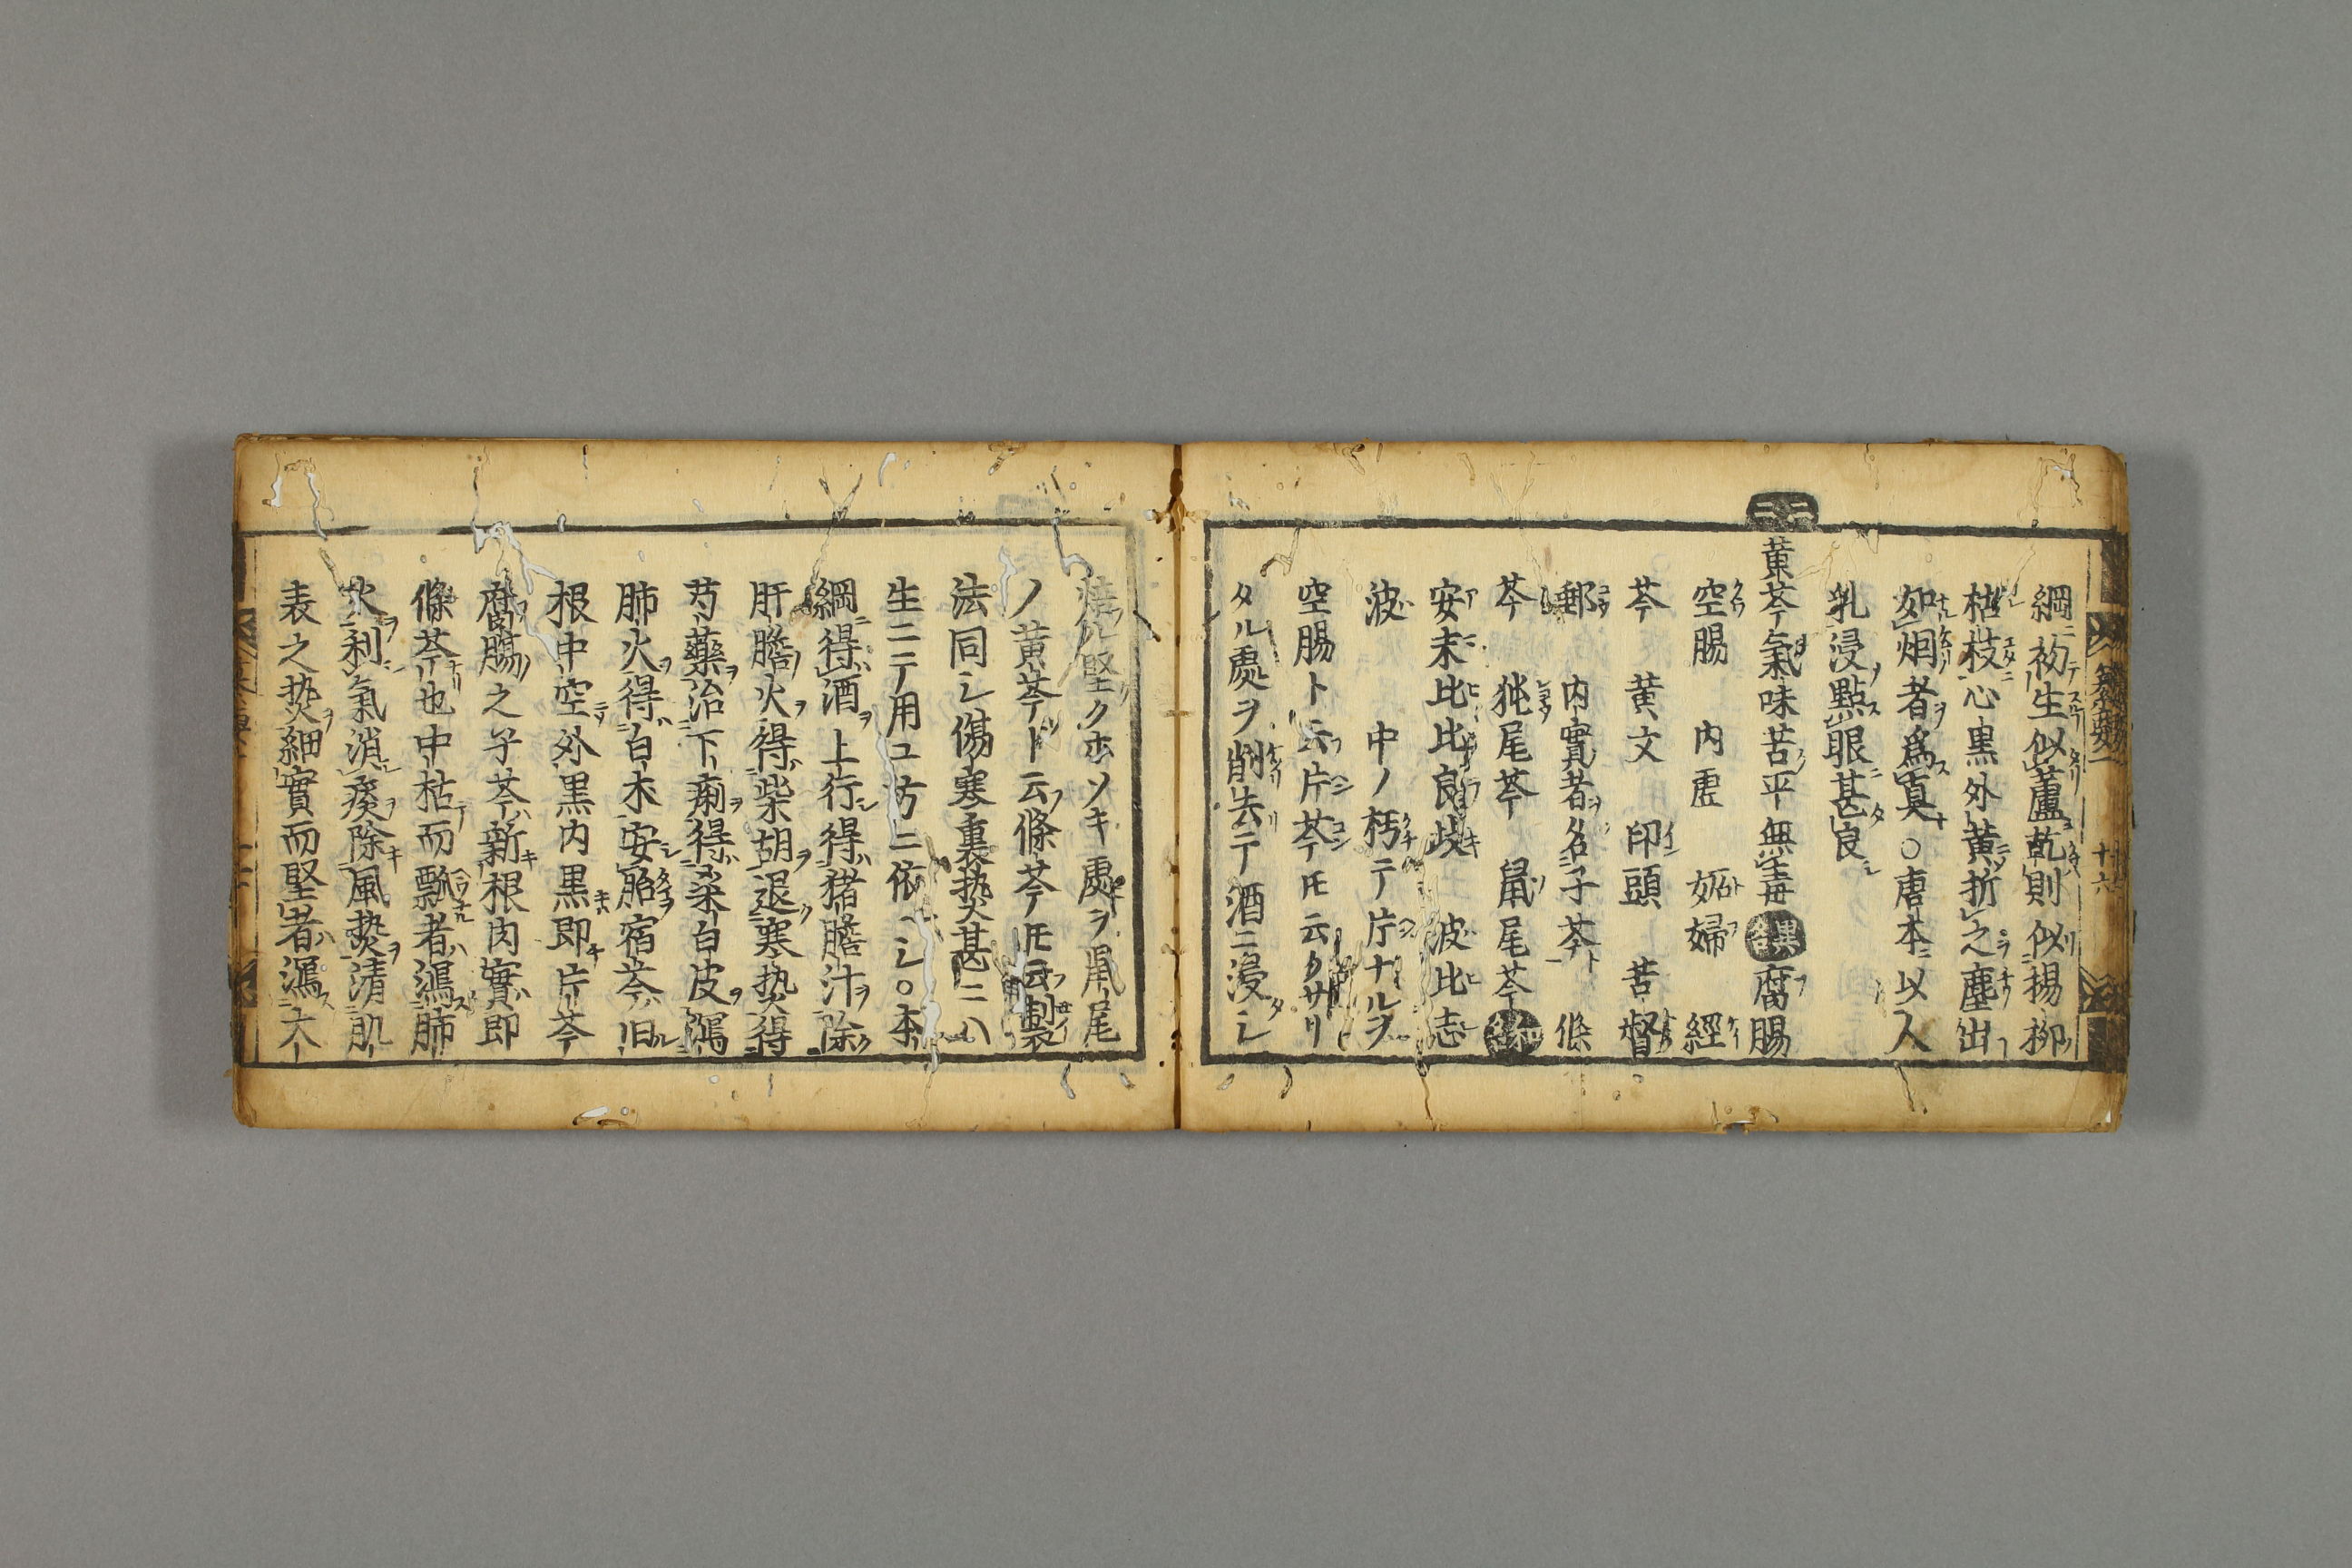 綱ニ初生似蘆乾則似楊柳
枯枝心黒外黄折之塵出
如烟者爲真○唐本ニ以人
乳浸點眼甚良
黄芩氣味苦平無毒 異名 腐腸
空腸 内虚 妬婦 經
芩 黄文 印頭 苦督
郵 内實者名子芩 條
芩 㹠尾芩 鼠尾芩 和名
安末比比良岐 波比志
波 中ノ朽テ片ナルヲ
空腸ト云片芩トモ云クサリ
タル處ヲ削去テ酒ニ浸シ
焙ル堅クホソキ處ヲ鼠尾
ノ黄芩ト云條芩トモ云製
法同シ傷寒裏熱甚ニハ
生ニテ用ユ方ニ依ヘシ○本
綱得酒上行得猪膽汁除
肝膽火得柴胡退寒熱得
芍藥治下痢得桑白皮瀉
肺火得白朮安胎宿芩旧
根中空外黒内黒即片芩
腐腸之子芩新根内實即
條芩也中枯而飄者瀉肺
火利氣消痰除風熱清肌
表之熱細實而堅者瀉大
十六